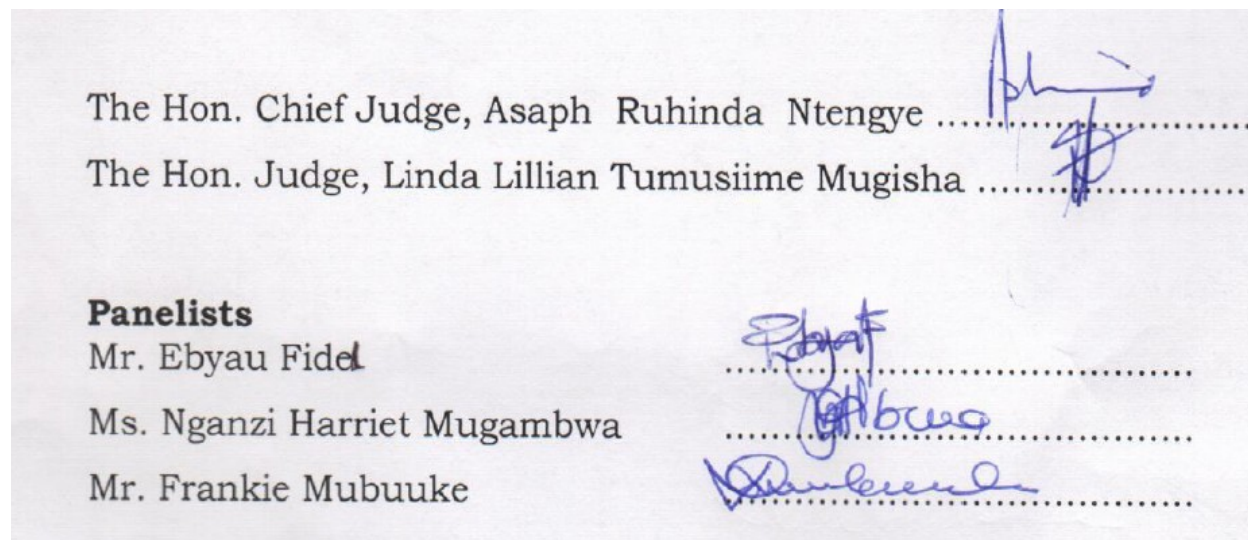 The Hon. Chief Judge, Asaph Ruhinda Ntengye ....................
The Hon. Judge, Linda Lillian Tumusiime Mugisha ....................
Panelists
Mr. Ebyau Fidel ........................................
Ms. Nganzi Harriet Mugambwa ........................................
Mr. Frankie Mubuuke ........................................